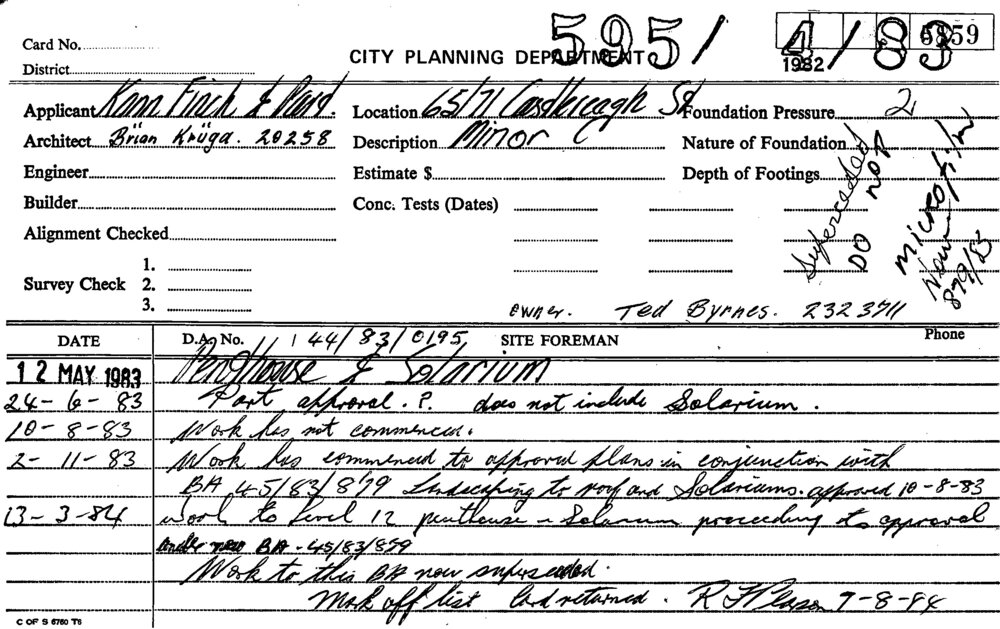 595/ 4/83 6859
Card No.
CITY PLANNING DEPARTMENT 1982
District
Applicant Kann Finch & Part. Location 65/71 Castlereagh St Foundation Pressure 2
Architect Brian Krüga. 20258 Description Minor C Nature of Foundation
Engineer Estimate $ Depth of Footings
Builder Conc. Tests (Dates)
Alignment Checked
Survey Check 1.
2.
3.
Superceeded
DO NOT
microfilm
New
879/83
owner. Ted Byrnes. 232 3711
DATE D.A. No. 44/83/0195 SITE FOREMAN Phone
12 MAY 1983 Penthouse & Solarium
24-6-83 Part approval. P. does not include Solarium.
10-8-83 Work has not commenced.
2-11-83 Work has commenced to approved plans in conjunction with
BA 45/83/879 Landscaping to roof and Solariums. approved 10-8-83
13-3-84 Work to Level 12 penthouse - Solarium proceeding to approval
under new BA - 45/83/879
Work to this BA now superseded.
Mark off list Card returned. 7-8-84
C OF S 6760 T6